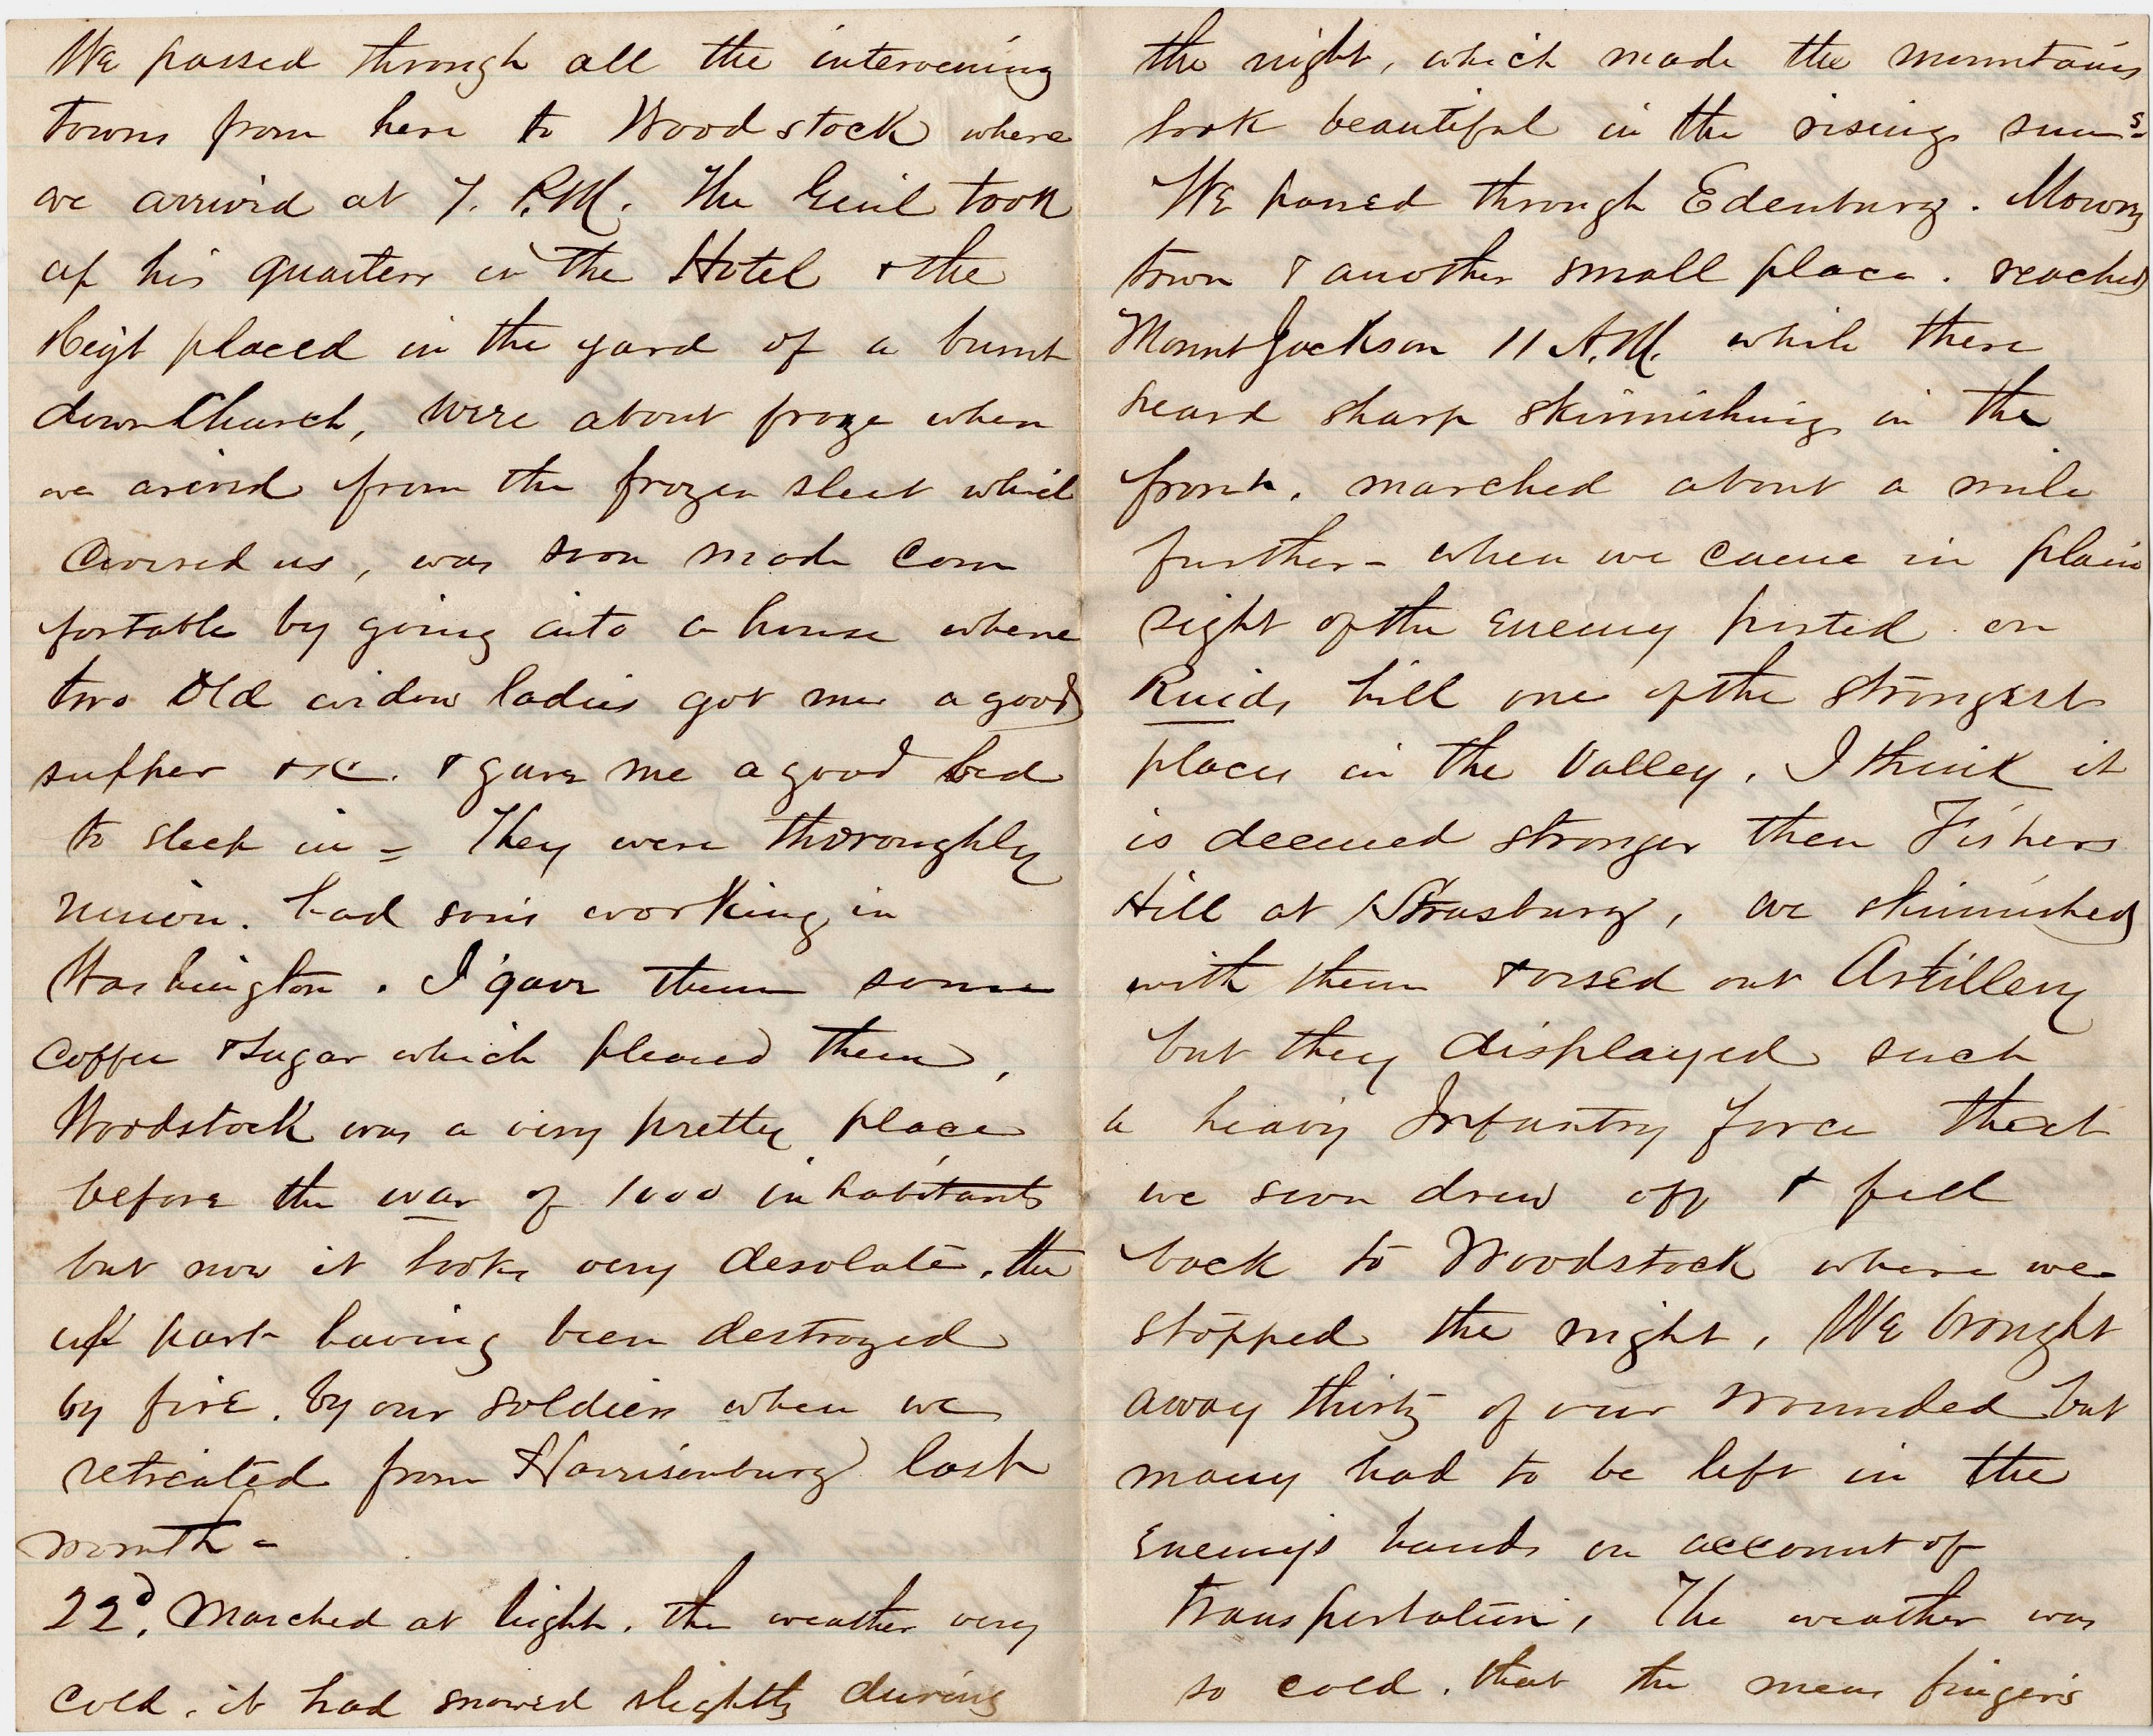 We passed through all the intervening
towns from here to Woodstock where
we arrivd at 7. P.M. The Genl took
up his quarters in the Hotel & the
Regt placed in the yard of a burnt
down Church, were about froze when
we arivd from the frozen sleet which
Covered us, was soon made Com
fortable by going into a house where
two Old widow ladies got me a good
supper &c. & gave me a good bed
to sleep in = They were thoroughly
union. had sons working in
Washington. I gave them some
Coffee & Sugar which pleased them,
Woodstock was a very pretty place
before the war of 1000 inhabitants
but now it looks very desolate, the
part having been destroyed
by fire. by our soldiers when we
retreated from Harrisonburg last
month -
22d. Marched at light. the weather very
cold, it had snowed slightly during
the night, which made the mountains
look beautiful in the rising suns-
We passed through Edenburg. Mowry
town & another small place. reached
Mount Jackson 11 A.M. while there
heard sharp skirmishing in the
front. marched about a mile
further - when we came in plain
sight of the Enemy posted on
Ruids hill one of the strongest
places in the Valley. I think it
is deemed stronger then Fishers
Hill at Strasburg, we skirmished
with them & used our Artillery
but they displayed such
a heavy Infantry force that
we soon drew off & fell
back to Woodstock where we
stopped the night, We brought
away thirty of our wounded but
many had to be left in the
Enemys hands on account of
transportation, The weather was
so cold. that the mens fingers